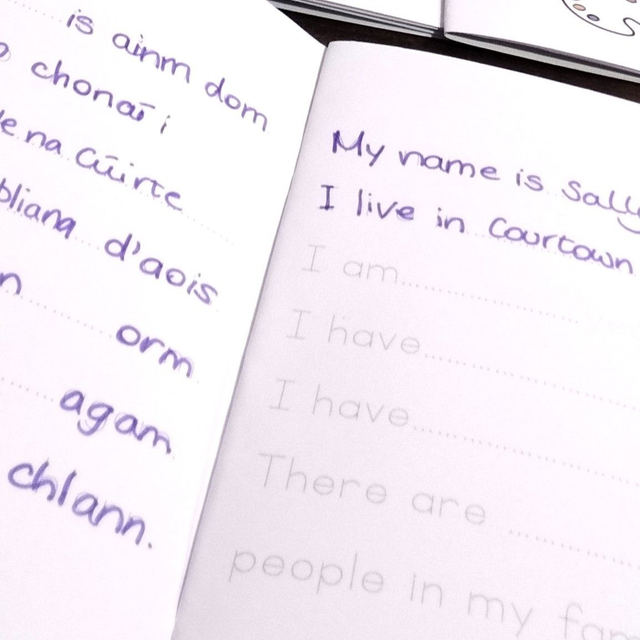 is ainm dom
chonaí i
na Cúirte
d'aois
orm
agam
chlann.
My name is Sally
I live in Courtown
I am
I have
I have
There are
people in my